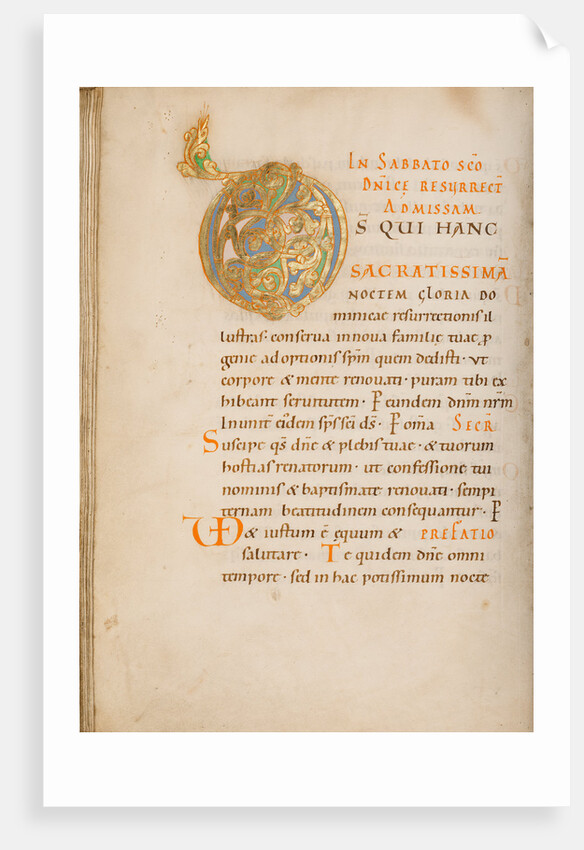 IN SABBATO SC̄O
DN̄ICĘ RESURRECT̄
AD MISSAM.
D̄S QUI HANC
SACRATISSIMĀ
NOCTEM GLORIA DO
minicae resurrectionis il
lustras· conserva in nova familię tuae· ꝓ
genie adoptionis sp̄m quem dedisti· ut
corpore & mente renovati· puram tibi ex
hibeant servitutem· P̄ eundem dn̄m nr̄m
In unit̄ eiusdem sp̄s sc̄i ds̄· P̄ om̄a SECR̄
Suscipe qs̄ dn̄e & plebis tuae· & tuorum
hostias renatorum· ut confessione tui
nominis & baptismate renovati· sempi
ternam beatitudinem consequantur· P̄
VD & iustum ē ęquum & PREFATIO
salutare· Te quidem dn̄e omni
tempore· sed in hac potissimum nocte